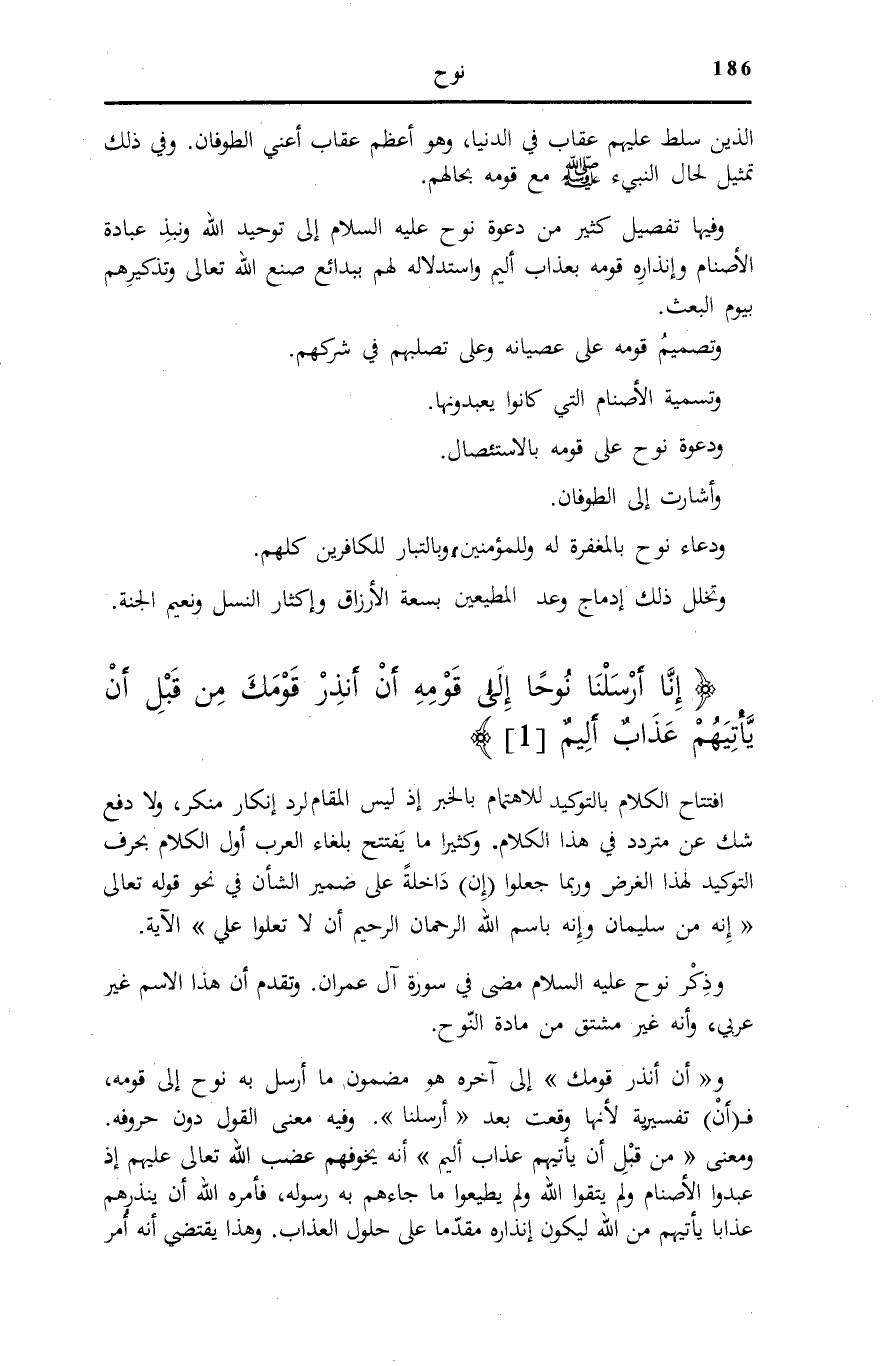 186
نوح
الذين سلط عليهم عقاب في الدنيا، وهو أعظم عقاب أعني الطوفان. وفي ذلك
تمثيل لحال النبيء ﷺ مع قومه بحالهم.
وفيها تفصيل كثير من دعوة نوح عليه السلام إلى توحيد الله ونبذِ عبادة
الأصنام وإنذارِه قومه بعذاب أليم واستدلاله لهم ببدائع صنع الله تعالى وتذكيرِهم
بيوم البعث.
وتصميمُ قومه على عصيانه وعلى تصلبهم في شركهم.
وتسمية الأصنام التي كانوا يعبدونها.
ودعوة نوح على قومه بالاستئصال.
وأشارت إلى الطوفان.
ودعاء نوح بالمغفرة له وللمؤمنين، وبالتبار للكافرين كلهم.
وتخلل ذلك إدماج وعد المطيعين بسعة الأرزاق وإكثار النسل ونعيم الجنة.
﴿ إِنَّا أَرْسَلْنَا نُوحًا إِلَىٰ قَوْمِهِ أَنْ أَنذِرْ قَوْمَكَ مِن قَبْلِ أَنْ
يَّأْتِيَهُمْ عَذَابٌ أَلِيمٌ [1] ﴾
افتتاح الكلام بالتوكيد للاهتمام بالخبر إذ ليس المقام لرد إنكار منكر، ولا دفع
شك عن متردد في هذا الكلام. وكثيرا ما يَفتتح بلغاء العرب أول الكلام بحرف
التوكيد لهذا الغرض وربما جعلوا (إن) دَاخلةً على ضمير الشأن في نحو قوله تعالى
« إنه من سليمان وإنه باسم الله الرحمان الرحيم أن لا تعلوا علي » الآية.
وذِكْر نوح عليه السلام مضى في سورة آل عمران. وتقدم أن هذا الاسم غير
عربي، وأنه غير مشتق من مادة النّوح.
و« أن أنذر قومك » إلى آخره هو مضمون ما أرسل به نوح إلى قومه،
فـ(أنْ) تفسيرية لأنها وقعت بعد « أرسلنا ». وفيه معنى القول دون حروفه.
ومعنى « من قبْلِ أن يأتيهم عذاب أليم » أنه يخوفهم غضب الله تعالى عليهم إذ
عبدوا الأصنام ولم يتقوا الله ولم يطيعوا ما جاءهم به رسوله، فأمره الله أن ينذرهم
عذابا يأتيهم من الله ليكون إنذاره مقدّما على حلول العذاب. وهذا يقتضي أنه أُمر